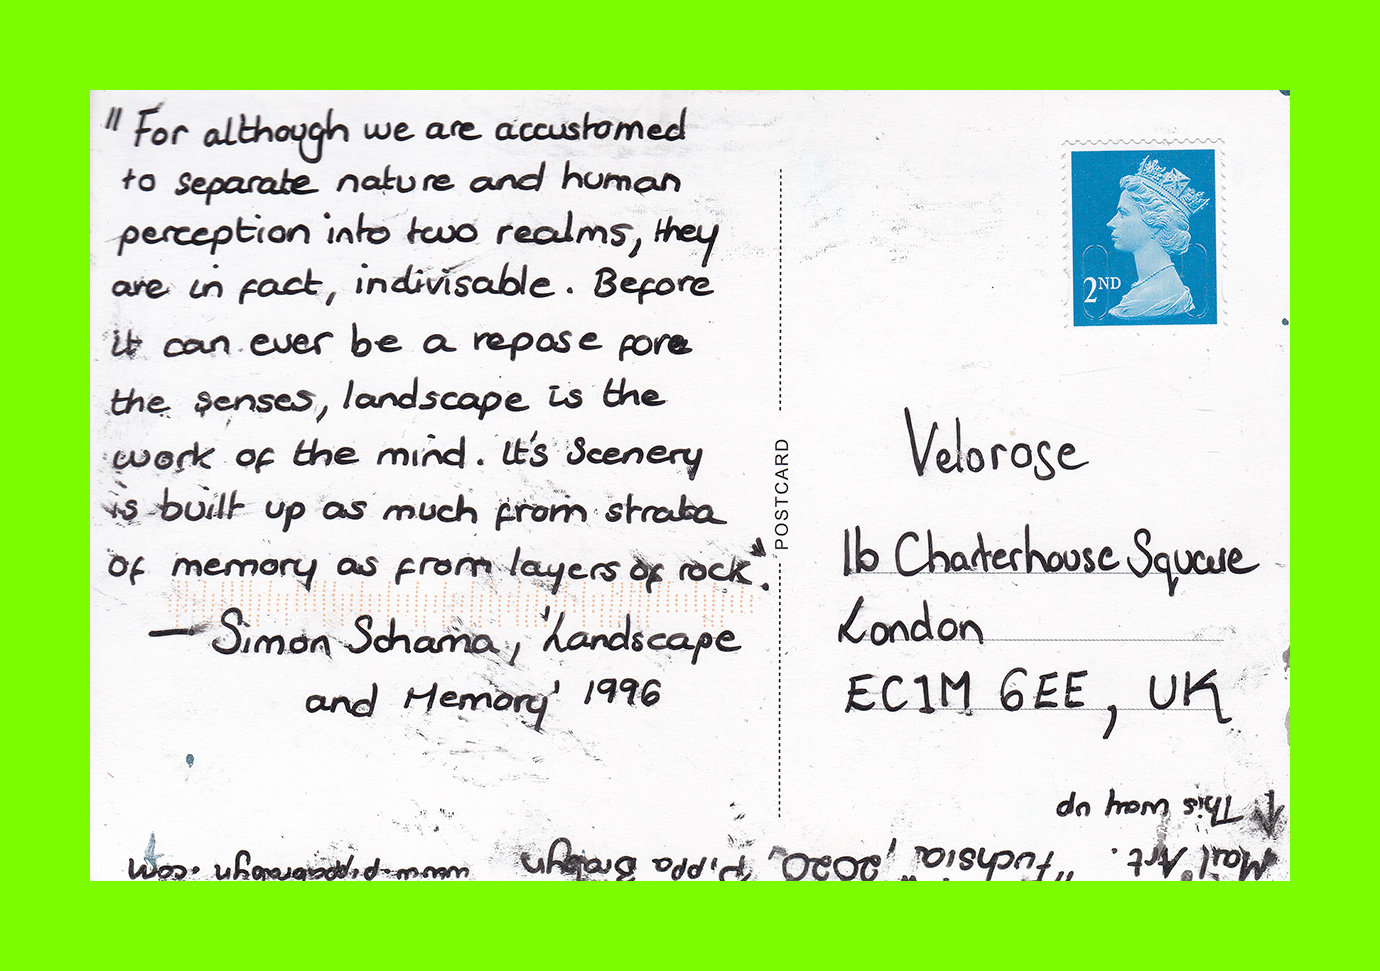 "For although we are accustomed
to separate nature and human
perception into two realms, they
are in fact, indivisable. Before
it can ever be a repose fore
the senses, landscape is the
work of the mind. It's Scenery
is built up as much from strata
of memory as from layers of rock".
— Simon Schama, 'Landscape
and Memory' 1996
POSTCARD
2ND
Velorose
1b Charterhouse Square
London
EC1M 6EE, UK
This way up
Mail Art. "Fuchsia", 2020, Pippa Brabyn www.pippabrabyn.com